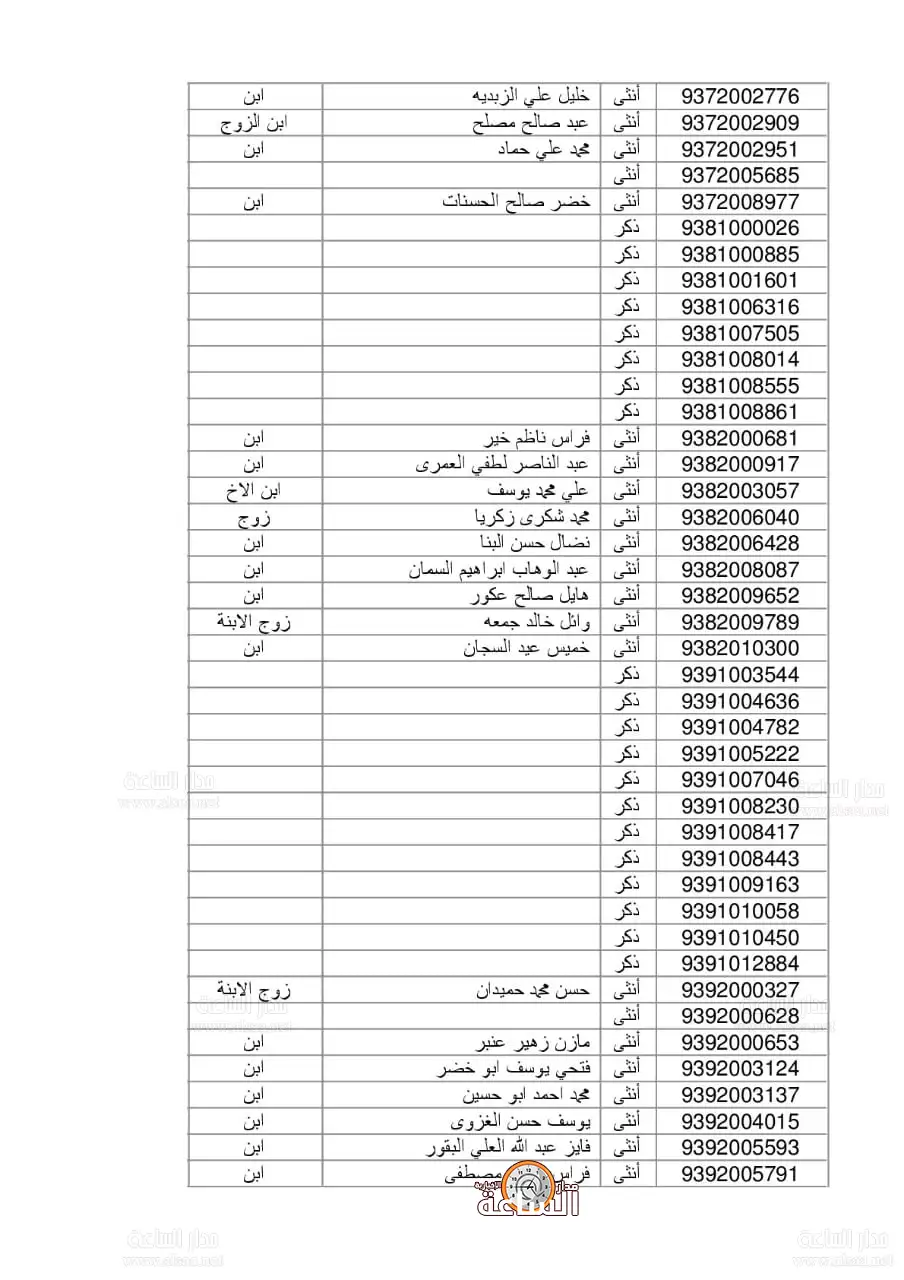 9372002776 أنثى خليل علي الزبديه ابن
9372002909 أنثى عبد صالح مصلح ابن الزوج
9372002951 أنثى محمد علي حماد ابن
9372005685 أنثى
9372008977 أنثى خضر صالح الحسنات ابن
9381000026 ذكر
9381000885 ذكر
9381001601 ذكر
9381006316 ذكر
9381007505 ذكر
9381008014 ذكر
9381008555 ذكر
9381008861 ذكر
9382000681 أنثى فراس ناظم خير ابن
9382000917 أنثى عبد الناصر لطفي العمرى ابن
9382003057 أنثى علي محمد يوسف ابن الاخ
9382006040 أنثى محمد شكرى زكريا زوج
9382006428 أنثى نضال حسن البنا ابن
9382008087 أنثى عبد الوهاب ابراهيم السمان ابن
9382009652 أنثى هايل صالح عكور ابن
9382009789 أنثى وائل خالد جمعه زوج الابنة
9382010300 أنثى خميس عيد السجان ابن
9391003544 ذكر
9391004636 ذكر
9391004782 ذكر
9391005222 ذكر
9391007046 ذكر
9391008230 ذكر
9391008417 ذكر
9391008443 ذكر
9391009163 ذكر
9391010058 ذكر
9391010450 ذكر
9391012884 ذكر
9392000327 أنثى حسن محمد حميدان زوج الابنة
9392000628 أنثى
9392000653 أنثى مازن زهير عنبر ابن
9392003124 أنثى فتحي يوسف ابو خضر ابن
9392003137 أنثى محمد احمد ابو حسين ابن
9392004015 أنثى يوسف حسن الغزوى ابن
9392005593 أنثى فايز عبد الله العلي البقور ابن
9392005791 أنثى فراس مصطفى ابن
مدار الساعة الإخبارية
مدار الساعة
www.alsaa.net
مدار الساعة
www.alsaa.net
مدار الساعة
www.alsaa.net
مدار الساعة
www.alsaa.net
مدار الساعة
www.alsaa.net
مدار الساعة
www.alsaa.net